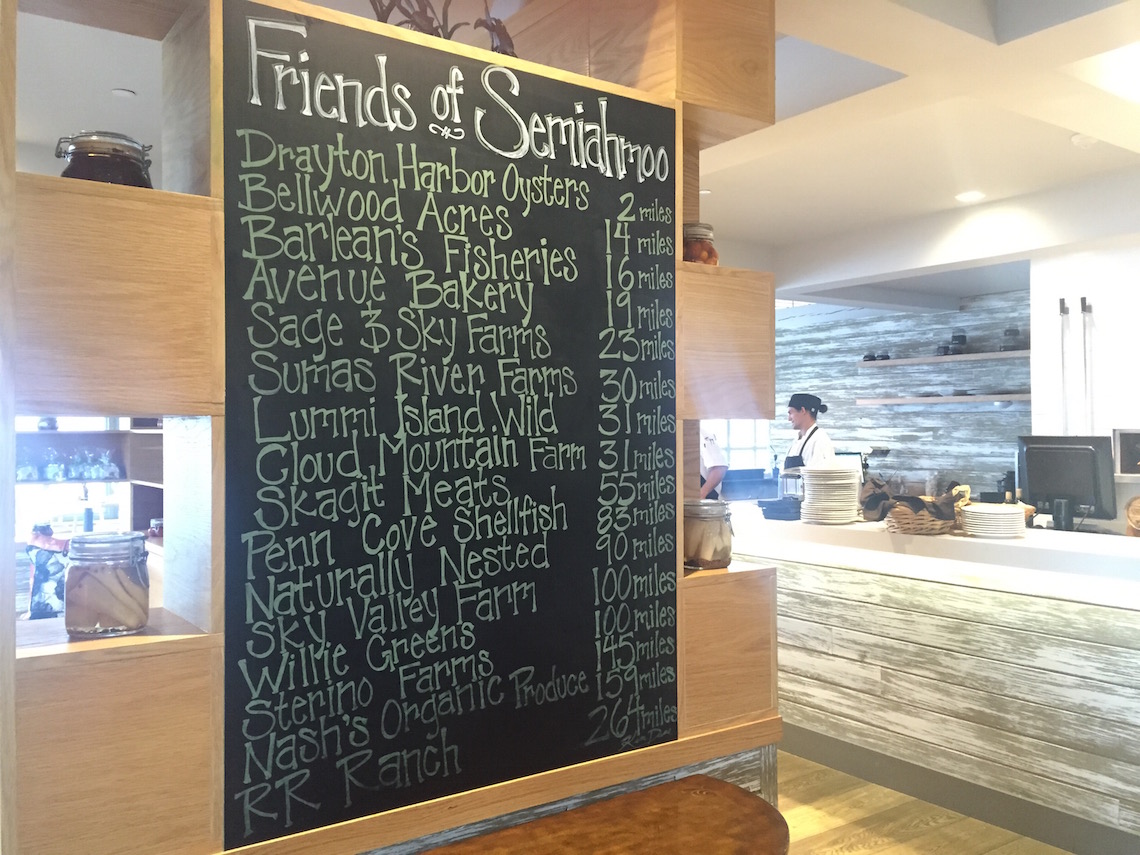 Friends of Semiahmoo
Drayton Harbor Oysters 2 miles
Bellwood Acres 14 miles
Barlean's Fisheries 16 miles
Avenue Bakery 19 miles
Sage & Sky Farms 23 miles
Sumas River Farms 30 miles
Lummi Island Wild 31 miles
Cloud Mountain Farm 31 miles
Skagit Meats 55 miles
Penn Cove Shellfish 83 miles
Naturally Nested 90 miles
Sky Valley Farm 100 miles
Willie Green's 100 miles
Sterino Farms 145 miles
Nash's Organic Produce 159 miles
RR Ranch 264 miles